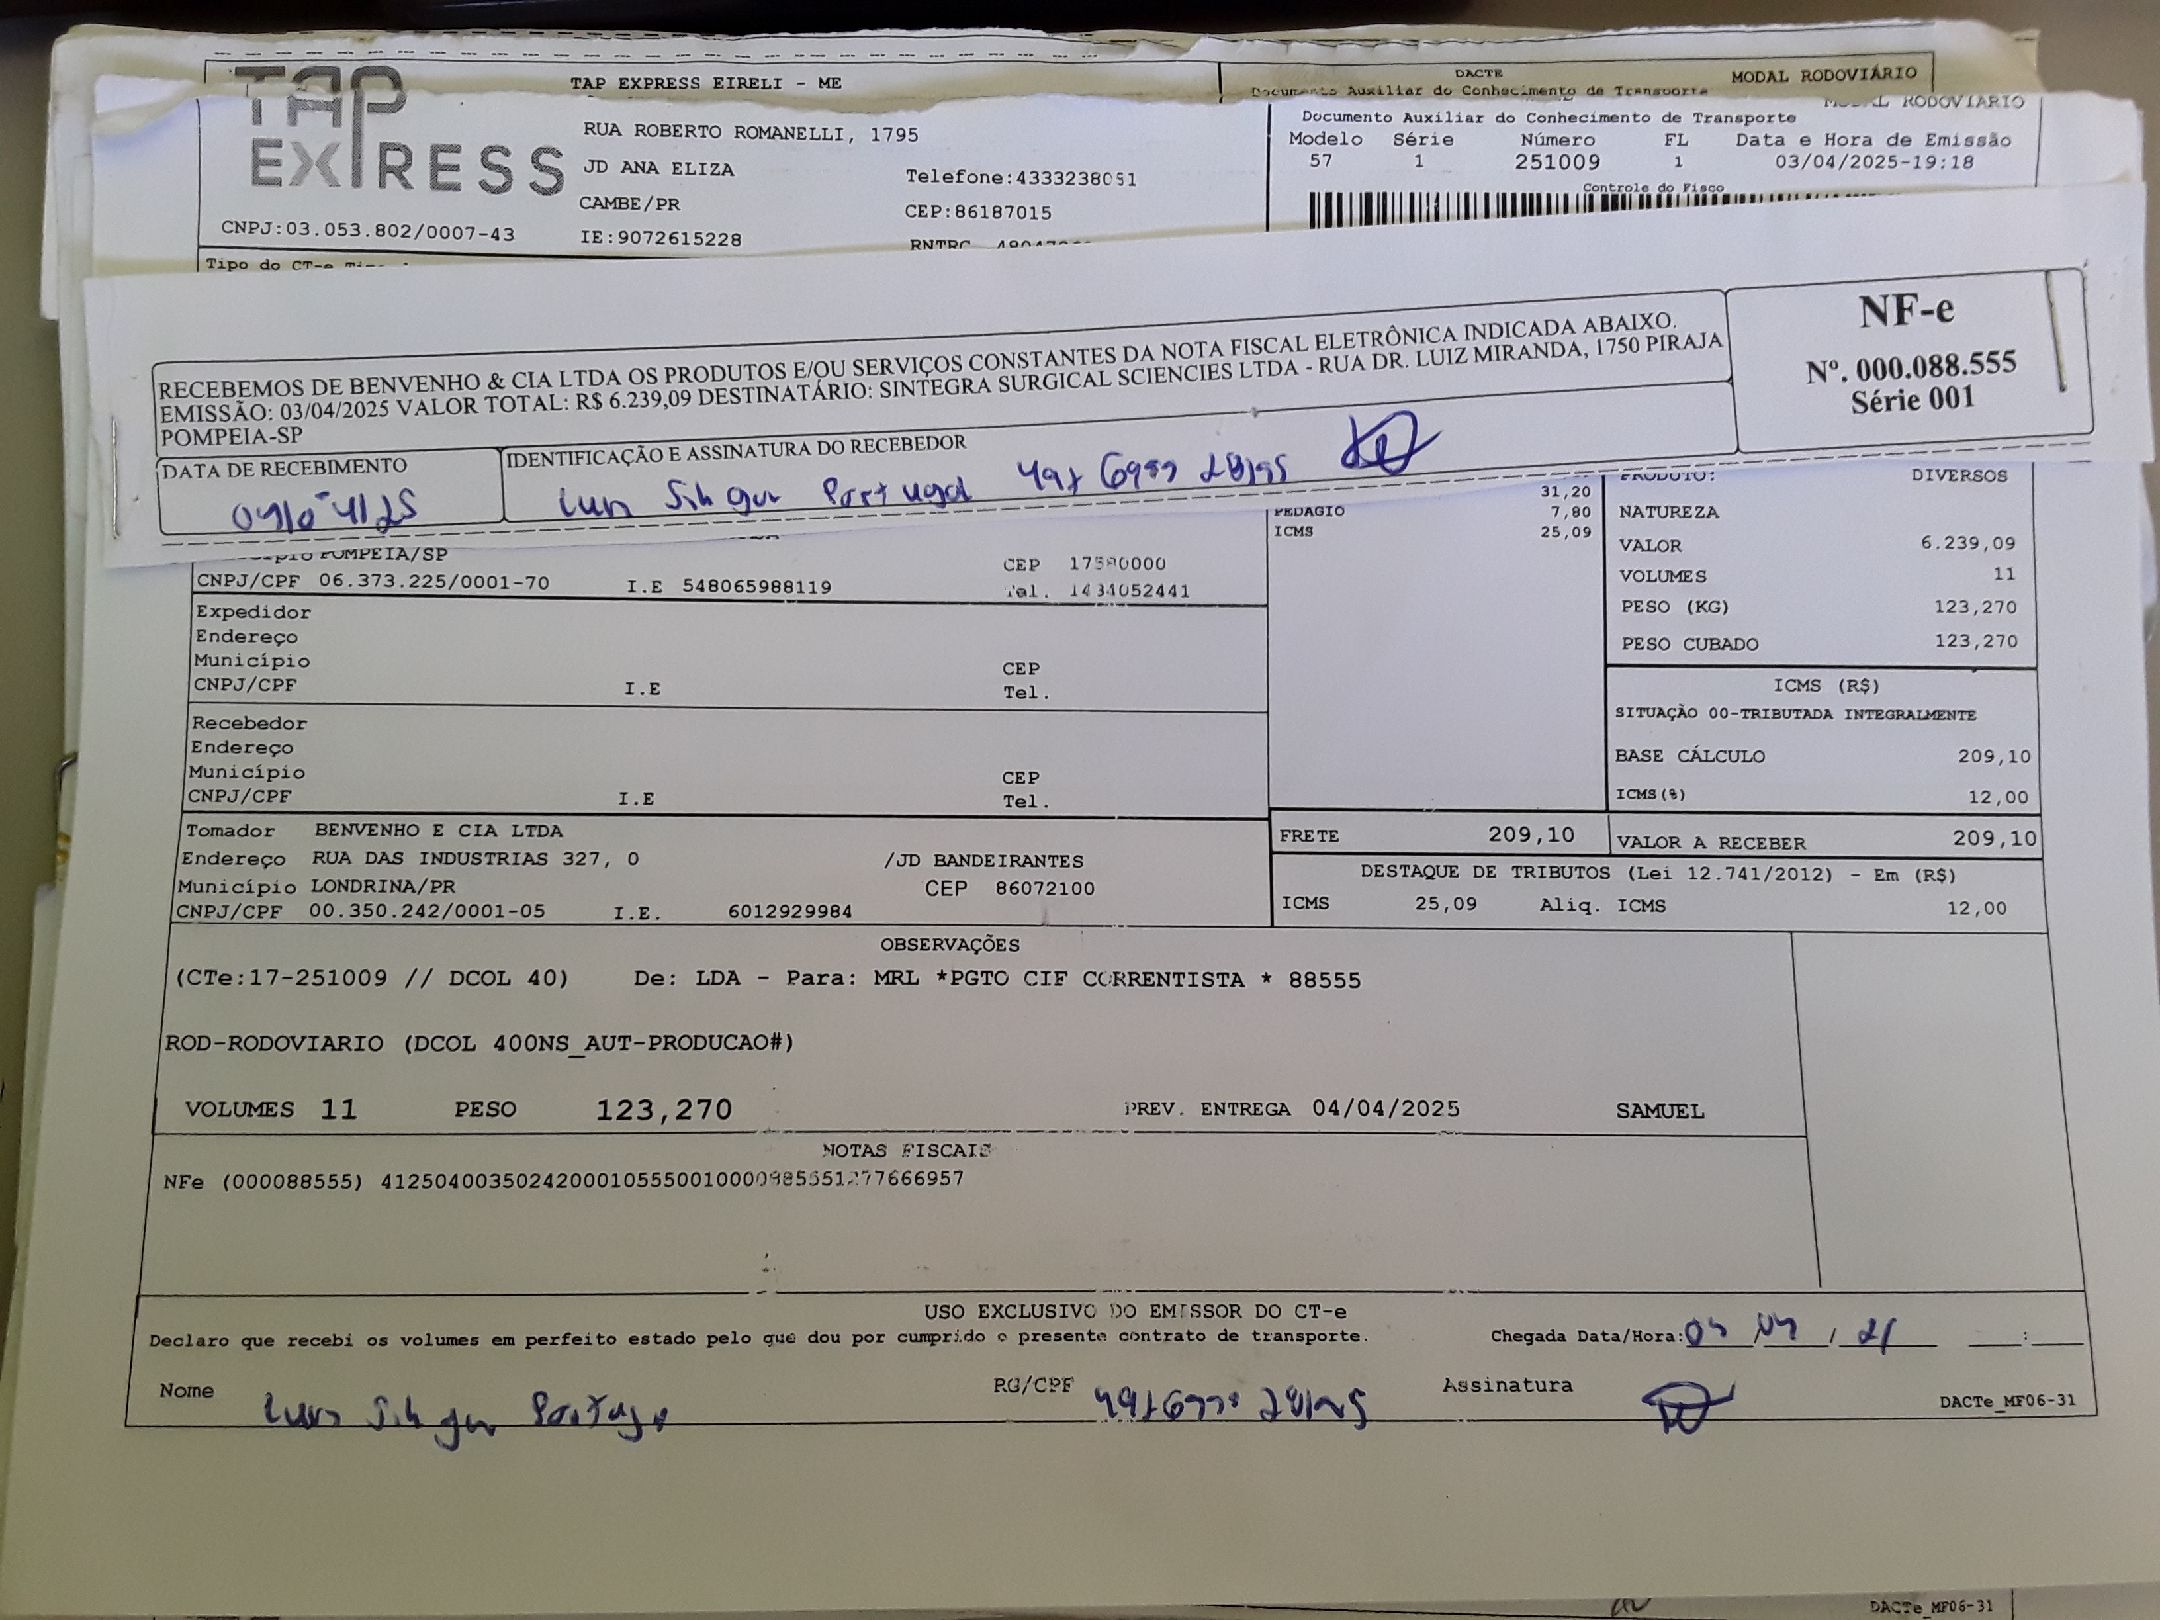 TAP EXPRESS
TAP EXPRESS EIRELI - ME
DACTE
MODAL RODOVIÁRIO
Documento Auxiliar do Conhecimento de Transporte
MODAL RODOVIARIO
Documento Auxiliar do Conhecimento de Transporte
RUA ROBERTO ROMANELLI, 1795
JD ANA ELIZA
Telefone:4333238051
CAMBE/PR
CEP:86187015
CNPJ:03.053.802/0007-43
IE:9072615228
RNTRC
Modelo Série Número FL Data e Hora de Emissão
57 1 251009 1 03/04/2025-19:18
Controle do Fisco
Tipo do CT-e
RECEBEMOS DE BENVENHO & CIA LTDA OS PRODUTOS E/OU SERVIÇOS CONSTANTES DA NOTA FISCAL ELETRÔNICA INDICADA ABAIXO.
EMISSÃO: 03/04/2025 VALOR TOTAL: R$ 6.239,09 DESTINATÁRIO: SINTEGRA SURGICAL SCIENCIES LTDA - RUA DR. LUIZ MIRANDA, 1750 PIRAJA
POMPEIA-SP
NF-e
Nº. 000.088.555
Série 001
DATA DE RECEBIMENTO
04/04/25
IDENTIFICAÇÃO E ASSINATURA DO RECEBEDOR
Portugal
POMPEIA/SP
CEP 17580000
CNPJ/CPF 06.373.225/0001-70 I.E 548065988119 Tel. 1434052441
31,20
PEDAGIO 7,80
ICMS 25,09
PRODUTO: DIVERSOS
NATUREZA
VALOR 6.239,09
VOLUMES 11
PESO (KG) 123,270
PESO CUBADO 123,270
Expedidor
Endereço
Município CEP
CNPJ/CPF I.E Tel.
ICMS (R$)
SITUAÇÃO 00-TRIBUTADA INTEGRALMENTE
BASE CÁLCULO 209,10
ICMS(%) 12,00
Recebedor
Endereço
Município CEP
CNPJ/CPF I.E Tel.
Tomador BENVENHO E CIA LTDA
Endereço RUA DAS INDUSTRIAS 327, 0 /JD BANDEIRANTES
Município LONDRINA/PR CEP 86072100
CNPJ/CPF 00.350.242/0001-05 I.E. 6012929984
FRETE 209,10 VALOR A RECEBER 209,10
DESTAQUE DE TRIBUTOS (Lei 12.741/2012) - Em (R$)
ICMS 25,09 Aliq. ICMS 12,00
OBSERVAÇÕES
(CTe:17-251009 // DCOL 40) De: LDA - Para: MRL *PGTO CIF CORRENTISTA * 88555
ROD-RODOVIARIO (DCOL 400NS_AUT-PRODUCAO#)
VOLUMES 11 PESO 123,270 PREV. ENTREGA 04/04/2025 SAMUEL
NOTAS FISCAIS
NFe (000088555)
USO EXCLUSIVO DO EMISSOR DO CT-e
Declaro que recebi os volumes em perfeito estado pelo que dou por cumprido o presente contrato de transporte. Chegada Data/Hora:
Nome RG/CPF Assinatura
DACTe_MF06-31
DACTe_MF06-31